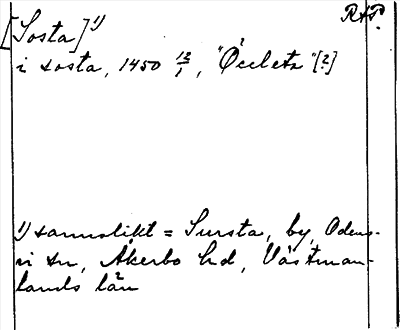 RAP.
[Sosta]¹⁾
i sosta, 1450 12/1, "Öcleta" [?]
¹⁾ sannolikt = Sursta, by, Odens-
vi sn, Åkerbo hd, Västman-
lands län